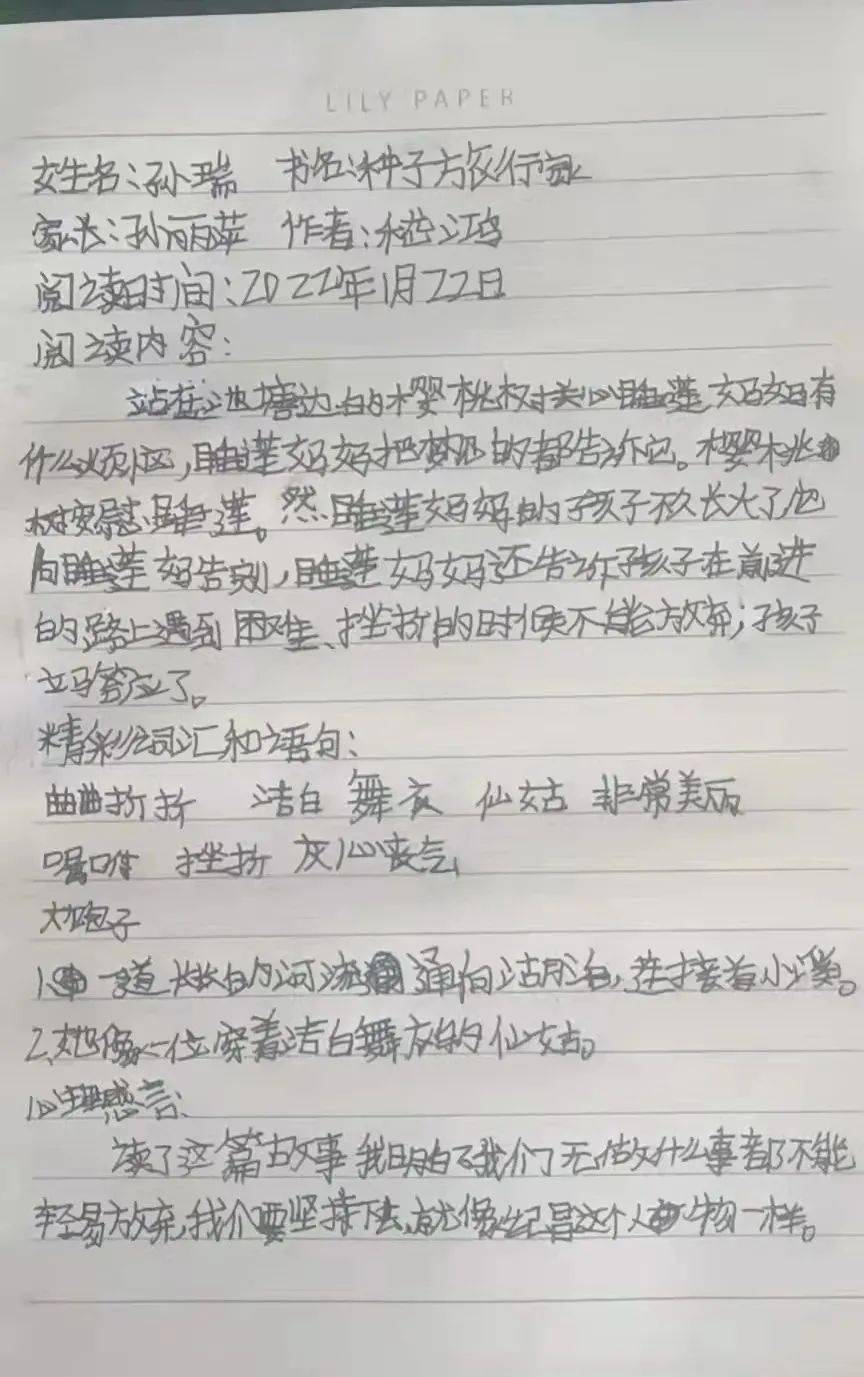 LILY PAPER
女生名:孙瑞 书名:种子方旅行录
家长:孙丽萍 作者:嵇鸿
阅读时间:2022年1月22日
阅读内容:
站在池塘边的樱桃树关心睡莲妈妈有
什么烦恼,睡莲妈妈把梦见的都告诉它。樱桃
树安慰睡莲。然睡莲妈妈的孩子不久长大了,它
向睡莲妈告别,睡莲妈妈还告诉孩子在前进
的路上遇到困难、挫折的时候不能放弃;孩子
立马答应了。
精彩词汇和语句:
曲曲折折 洁白 舞衣 仙姑 非常美丽
嘱咐 挫折 灰心丧气
大炮子
1.一道长长的河流通向沽泊,连接着小溪。
2.她像一位穿着洁白舞衣的仙姑。
心里感言:
读了这篇故事我明白了我们无做什么事都不能
轻易放弃,我们要坚持下去,就像纪昌这个人物一样。